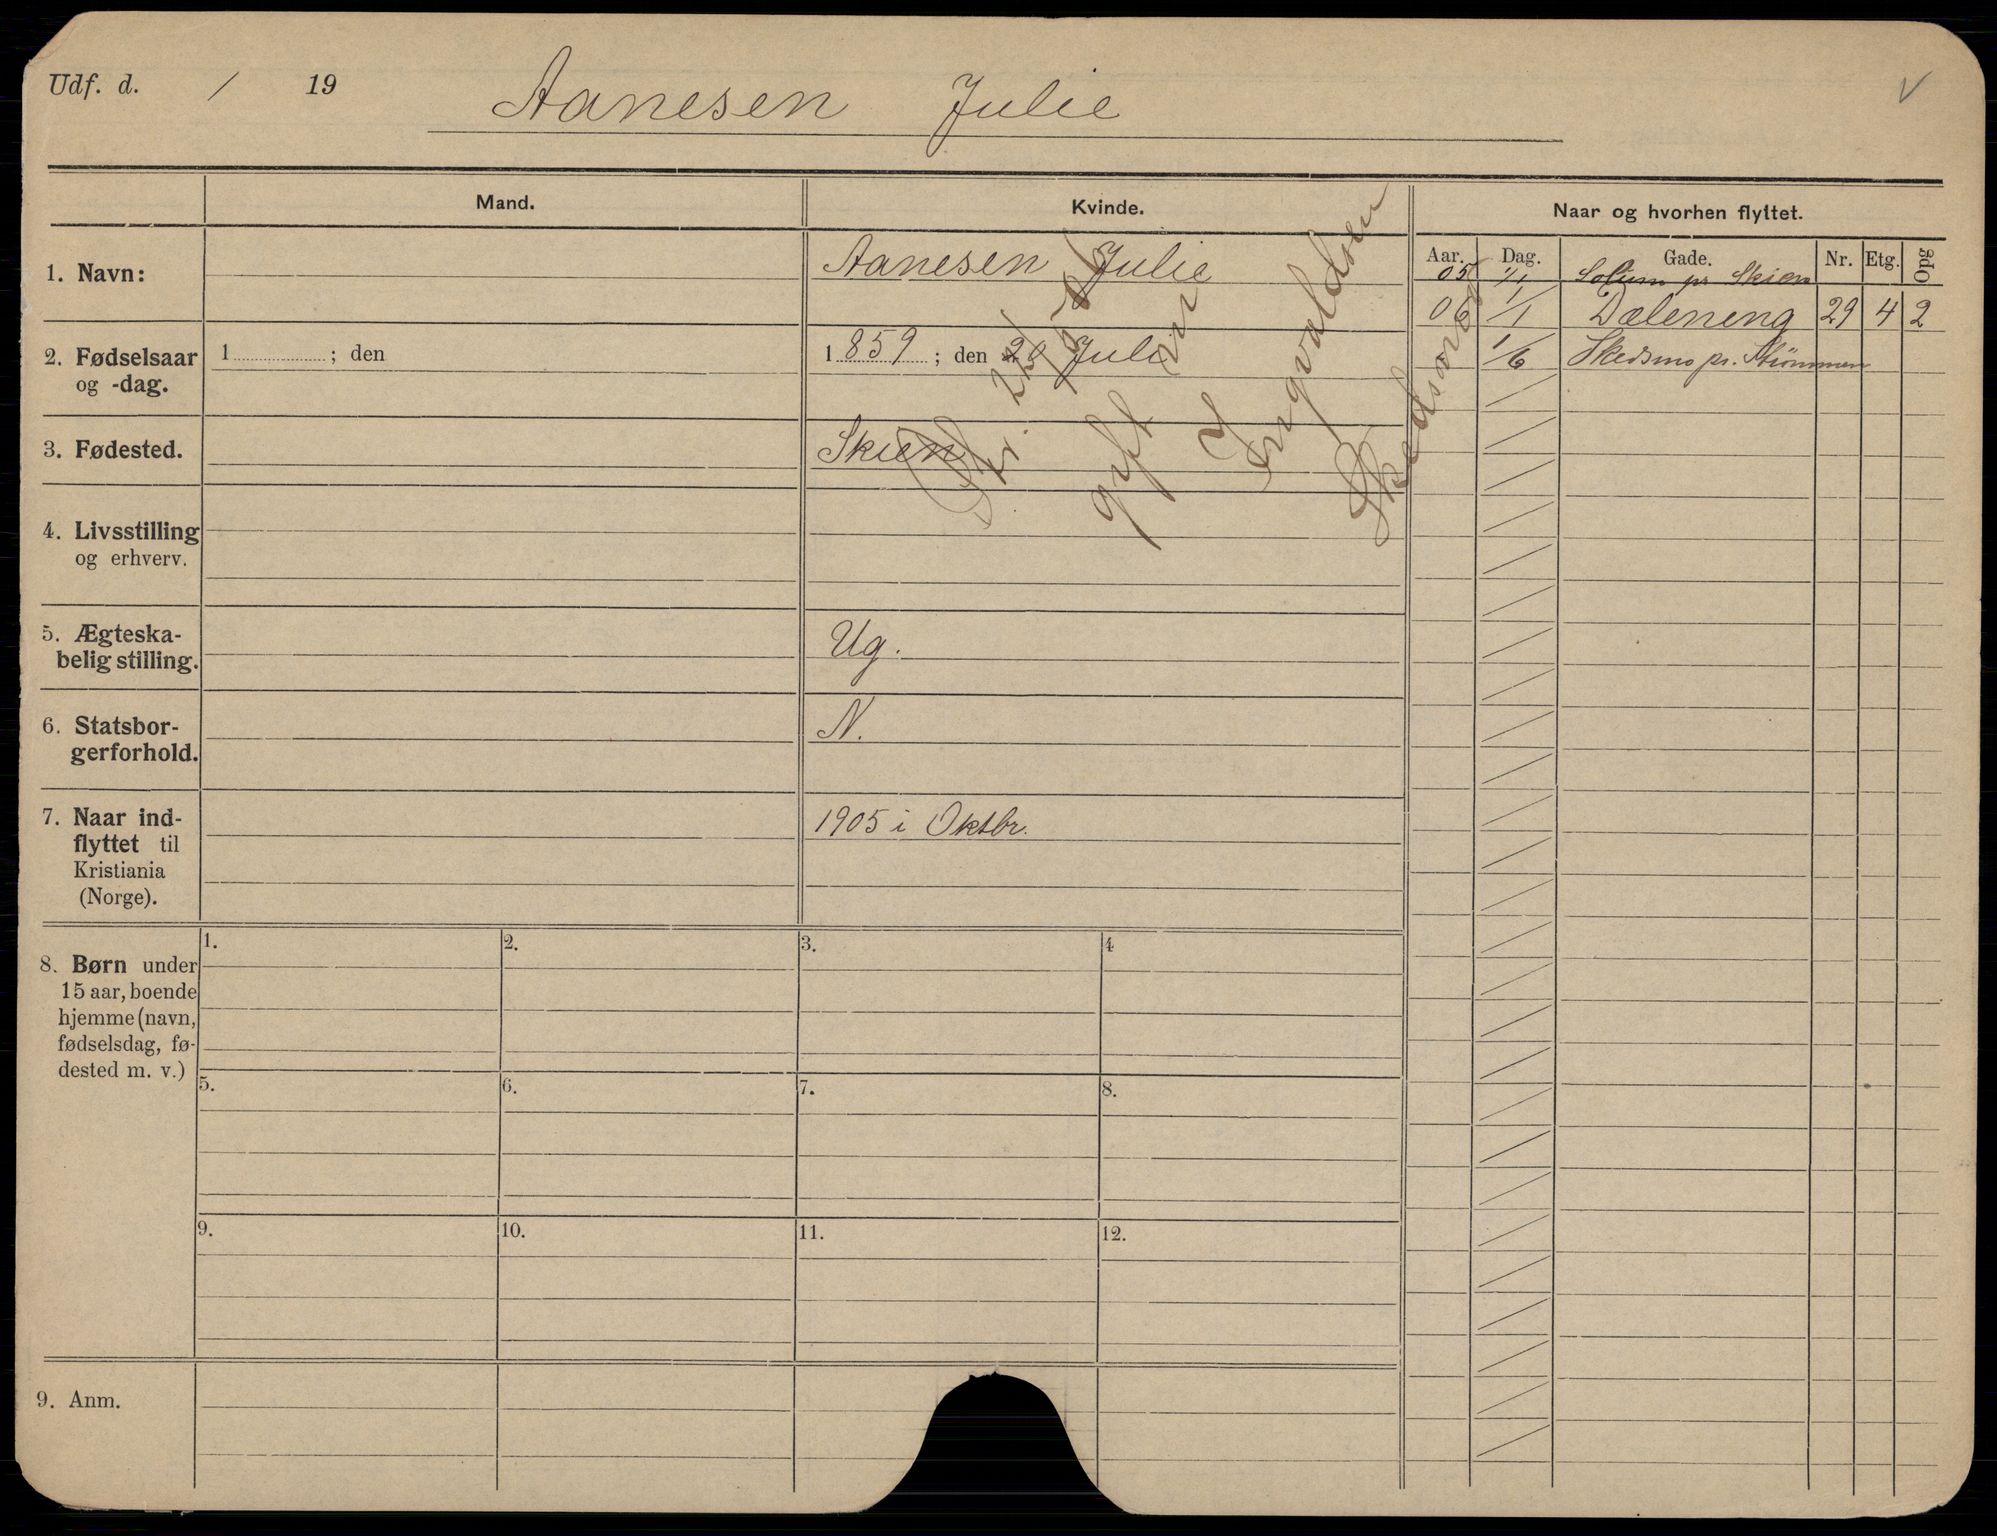 Udf. d. / 19
Aanesen Julie
V
Mand.
Kvinde.
Naar og hvorhen flyttet.
Aar. Dag. Gade. Nr. Etg. Opg
1. Navn:
Aanesen Julie
2. Fødselsaar
og -dag.
1 ; den
1 859 ; den 20 Juli
3. Fødested.
Skien
4. Livsstilling
og erhverv.
5. Ægteska-
belig stilling.
Ug.
6. Statsbor-
gerforhold.
N.
7. Naar ind-
flyttet til
Kristiania
(Norge).
1905 i Oktbr.
gift
Ingvaldsen
05 1/1 Solum pr Skien
06 1/1 Dæleneng 29 4 2
1/6 Skedsmo pr. Strømmen
8. Børn under
15 aar, boende
hjemme (navn,
fødselsdag, fø-
dested m. v.)
1. 2. 3. 4
5. 6. 7. 8.
9. 10. 11. 12.
9. Anm.